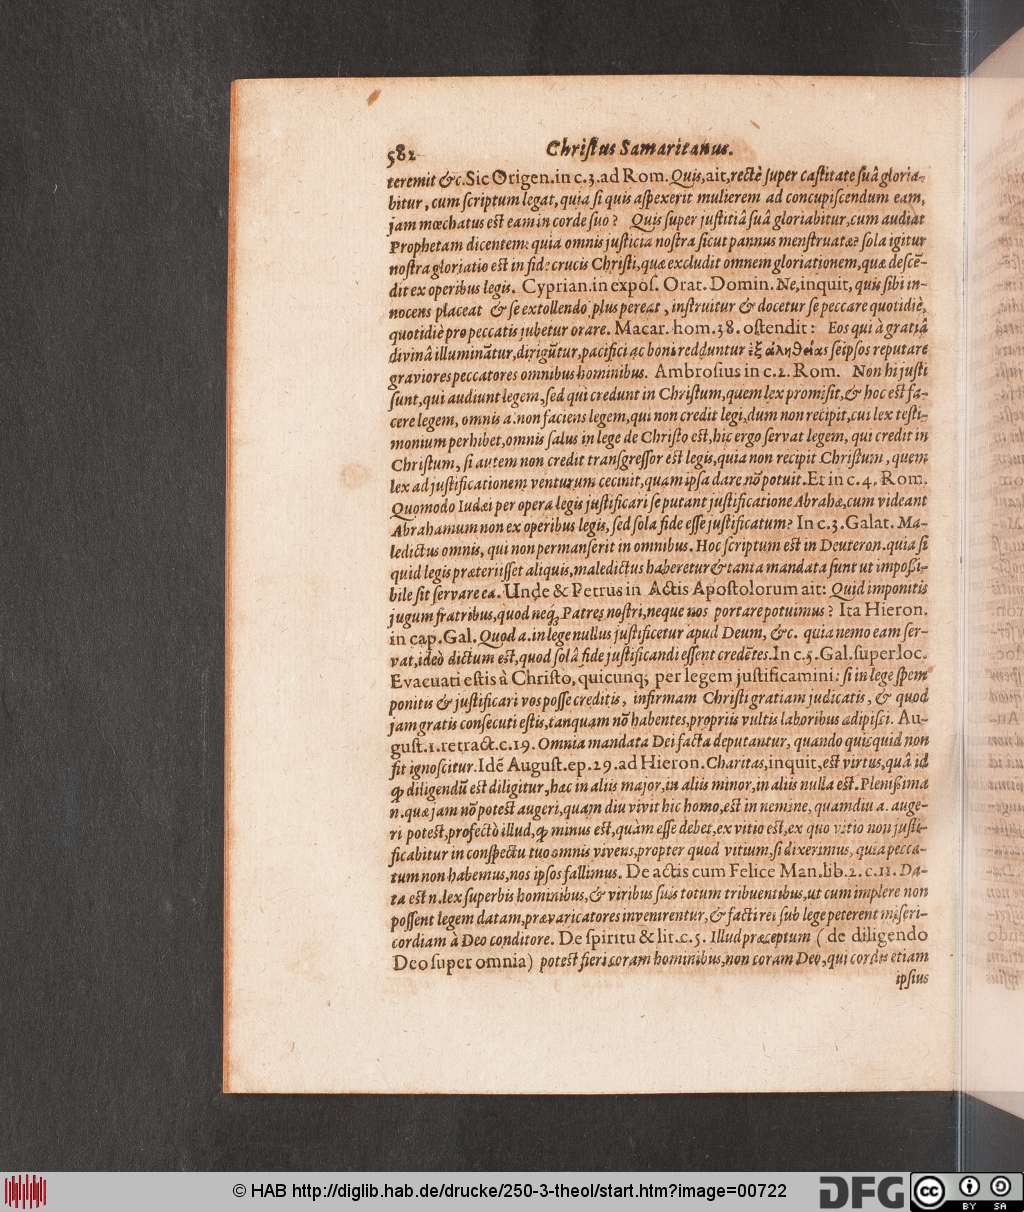 582 Christus Samaritanus.
teremit &c. Sic Origen. in c. 3. ad Rom. Quis, ait, rectè super castitate suâ gloria-
bitur, cum scriptum legat, quia si quis aspexerit mulierem ad concupiscendum eam,
jam mœchatus est eam in corde suo? Quis super justitiâ suâ gloriabitur, cum audiat
Prophetam dicentem: quia omnis justicia nostra sicut pannus menstruatæ? sola igitur
nostra gloriatio est in fide crucis Christi, quæ excludit omnem gloriationem, quæ descē-
dit ex operibus legis. Cyprian. in expos. Orat. Domin. Ne, inquit, quis sibi in-
nocens placeat & se extollendo plus pereat, instruitur & docetur se peccare quotidiè,
quotidiè pro peccatis jubetur orare. Macar. hom. 38. ostendit: Eos qui à gratiâ
divinâ illuminātur, dirigūtur, pacifici ac boni redduntur ἐξ ἀληθείας seipsos reputare
graviores peccatores omnibus hominibus. Ambrosius in c. 2. Rom. Non hi justi
sunt, qui audiunt legem, sed qui credunt in Christum, quem lex promisit, & hoc est fa-
cere legem, omnis a. non faciens legem, qui non credit legi, dum non recipit, cui lex testi-
monium perhibet, omnis salus in lege de Christo est, hic ergo servat legem, qui credit in
Christum, si autem non credit transgressor est legis, quia non recipit Christum, quem
lex ad justificationem venturum cecinit, quam ipsa dare nō potuit. Et in c. 4. Rom.
Quomodo Iudæi per opera legis justificari se putant justificatione Abrahæ, cum videant
Abrahamum non ex operibus legis, sed sola fide esse justificatum? In c. 3. Galat. Ma-
ledictus omnis, qui non permanserit in omnibus. Hoc scriptum est in Deuteron. quia si
quid legis præteriisset aliquis, maledictus haberetur & tanta mandata sunt ut impossi-
bile sit servare ea. Unde & Petrus in Actis Apostolorum ait: Quid imponitis
jugum fratribus, quod neq; Patres nostri, neque nos portare potuimus? Ita Hieron.
in cap. Gal. Quod a. in lege nullus justificetur apud Deum, &c. quia nemo eam ser-
vat, ideò dictum est, quod solâ fide justificandi essent credētes. In c. 5. Gal. super loc.
Evacuati estis à Christo, quicunq; per legem justificamini: si in lege spem
ponitis & justificari vos posse creditis, infirmam Christi gratiam judicatis, & quod
jam gratis consecuti estis, tanquam nō habentes, propriis vultis laboribus adipisci. Au-
gust. 1. retract. c. 19. Omnia mandata Dei facta deputantur, quando quicquid non
fit ignoscitur. Idē August. ep. 29. ad Hieron. Charitas, inquit, est virtus, quâ id
ꝙ diligendū est diligitur, hac in aliis major, in aliis minor, in aliis nulla est. Plenissima
n. quæ jam nō potest augeri, quam diu vivit hic homo, est in nemine, quamdiu a. auge-
ri potest, profectò illud, ꝙ minus est, quàm esse debet, ex vitio est, ex quo vitio non justi-
ficabitur in conspectu tuo omnis vivens, propter quod vitium, si dixerimus, quia pecca-
tum non habemus, nos ipsos fallimus. De actis cum Felice Man. lib. 2. c. 11. Da-
ta est n. lex superbis hominibus, & viribus suis totum tribuentibus, ut cum implere non
possent legem datam, prævaricatores invenirentur, & facti rei sub lege peterent miseri-
cordiam à Deo conditore. De spiritu & lit. c. 5. Illud præceptum (de diligendo
Deo super omnia) potest fieri coram hominibus, non coram Deo, qui cordis etiam
ipsius
© HAB http://diglib.hab.de/drucke/250-3-theol/start.htm?image=00722
DFG cc BY SA